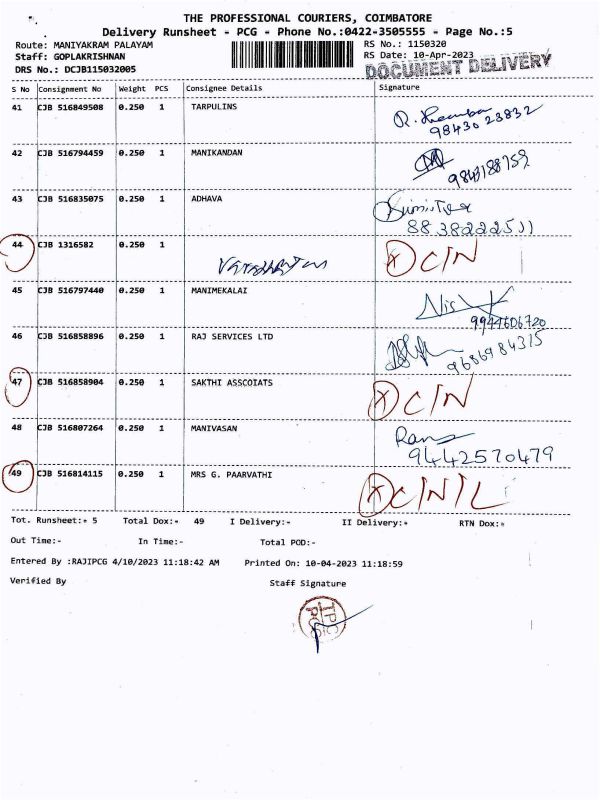 THE PROFESSIONAL COURIERS, COIMBATORE
Delivery Runsheet - PCG - Phone No.:0422-3505555 - Page No.:5
Route: MANIYAKRAM PALAYAM RS No.: 1150320
Staff: GOPLAKRISHNAN RS Date: 10-Apr-2023
DRS No.: DCJB115032005 DOCUMENT DELIVERY
S No Consignment No Weight PCS Consignee Details Signature
41 CJB 516849508 0.250 1 TARPULINS
9843023832
42 CJB 516794459 0.250 1 MANIKANDAN
9843188759
43 CJB 516835075 0.250 1 ADHAVA
8838222511
44 CJB 1316582 0.250 1 X C/N
45 CJB 516797440 0.250 1 MANIMEKALAI
9944606720
46 CJB 516858896 0.250 1 RAJ SERVICES LTD
9686984315
47 CJB 516858904 0.250 1 SAKTHI ASSCOIATS X C/N
48 CJB 516807264 0.250 1 MANIVASAN
9442570479
49 CJB 516814115 0.250 1 MRS G. PAARVATHI X C/N/L
Tot. Runsheet:* 5 Total Dox:* 49 I Delivery:- II Delivery:* RTN Dox:*
Out Time:- In Time:- Total POD:-
Entered By :RAJIPCG 4/10/2023 11:18:42 AM Printed On: 10-04-2023 11:18:59
Verified By Staff Signature